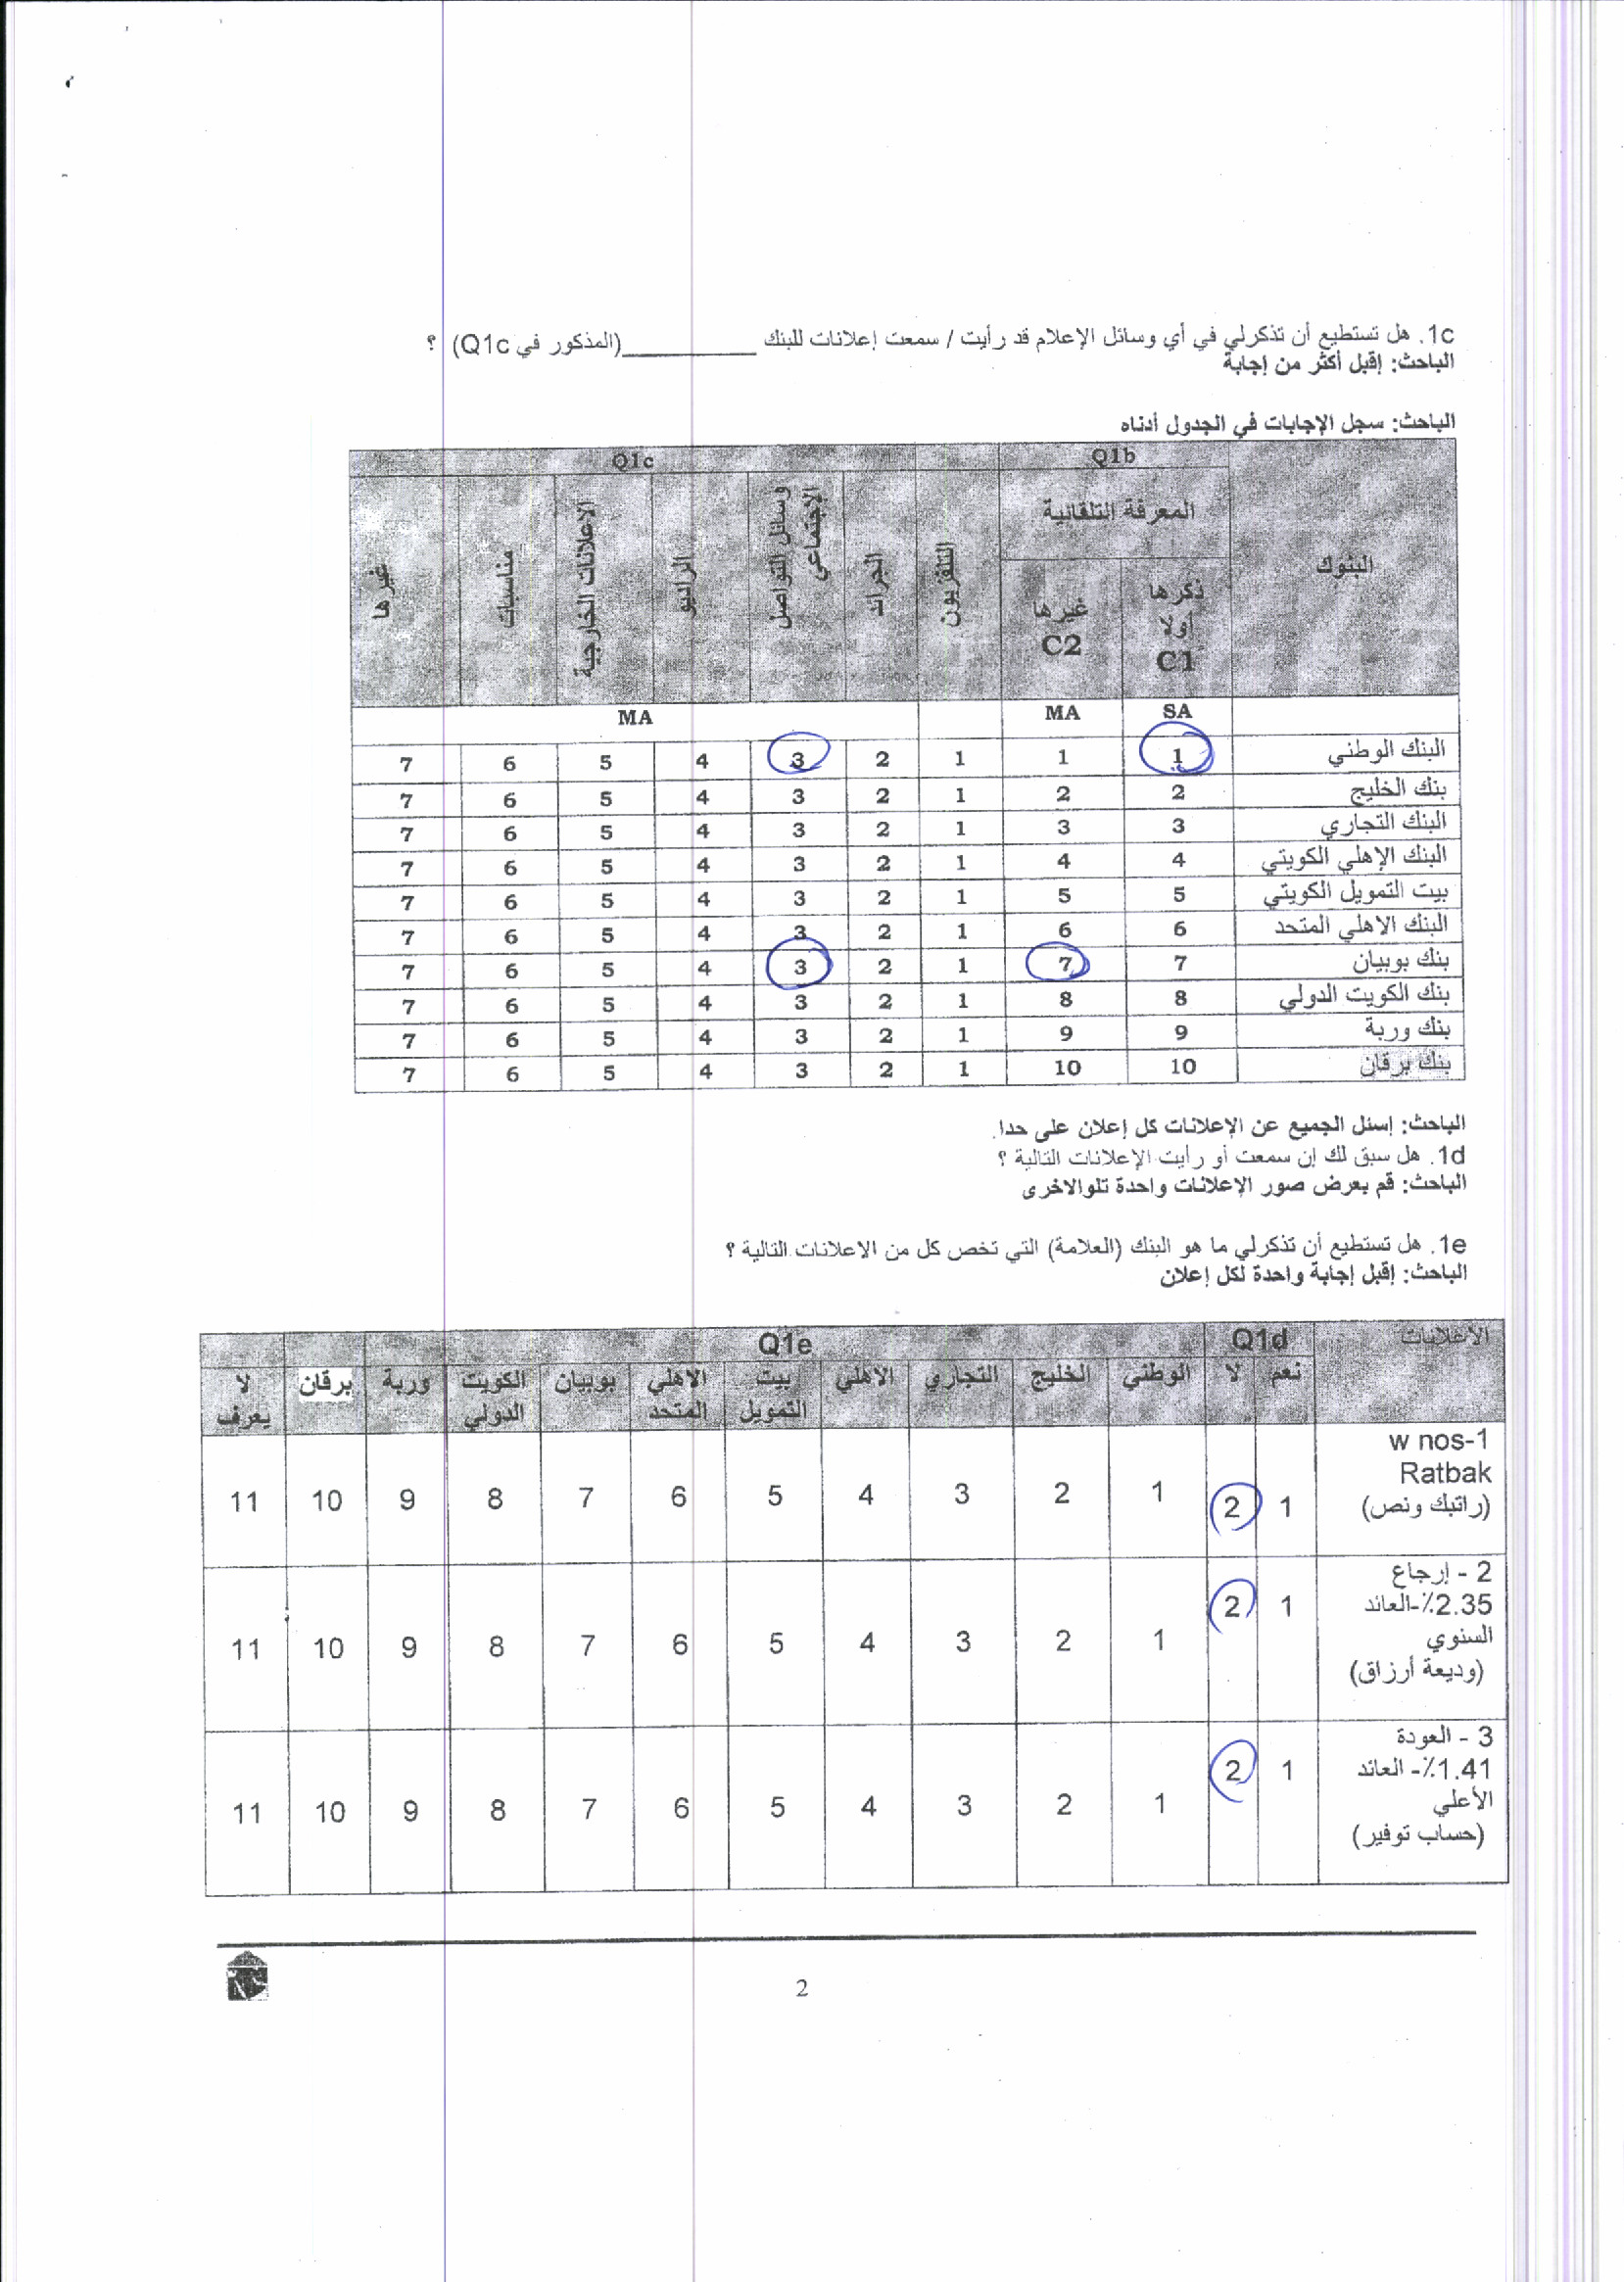 1c. هل تستطيع أن تذكرلي في أي وسائل الإعلام قد رأيت / سمعت إعلانات للبنك ____________(المذكور في Q1c) ؟
الباحث: إقبل أكثر من إجابة
الباحث: سجل الإجابات في الجدول أدناه
البنوك Q1b Q1c
المعرفة التلقائية التلفزيون الجرائد وسائل التواصل الإجتماعي الراديو الاعلانات الخارجية مناسبات غيرها
ذكرها أولا C1 غيرها C2
SA MA MA
البنك الوطني 1 1 1 2 3 4 5 6 7
بنك الخليج 2 2 1 2 3 4 5 6 7
البنك التجاري 3 3 1 2 3 4 5 6 7
البنك الإهلي الكويتي 4 4 1 2 3 4 5 6 7
بيت التمويل الكويتي 5 5 1 2 3 4 5 6 7
البنك الاهلي المتحد 6 6 1 2 3 4 5 6 7
بنك بوبيان 7 7 1 2 3 4 5 6 7
بنك الكويت الدولي 8 8 1 2 3 4 5 6 7
بنك وربة 9 9 1 2 3 4 5 6 7
بنك برقان 10 10 1 2 3 4 5 6 7
الباحث: إسئل الجميع عن الإعلانات كل إعلان على حدا.
1d. هل سبق لك إن سمعت أو رأيت الإعلانات التالية ؟
الباحث: قم بعرض صور الإعلانات واحدة تلوالاخرى
1e. هل تستطيع أن تذكرلي ما هو البنك (العلامة) التي تخص كل من الاعلانات التالية ؟
الباحث: إقبل إجابة واحدة لكل إعلان
الأعلانات Q1d Q1e
نعم لا الوطني الخليج التجاري الاهلي بيت التمويل الاهلي المتحد بوبيان الكويت الدولي وربة برقان لا يعرف
w nos-1
Ratbak
(راتبك ونص) 1 2 1 2 3 4 5 6 7 8 9 10 11
2 - إرجاع
2.35٪-العائد
السنوي
(وديعة أرزاق) 1 2 1 2 3 4 5 6 7 8 9 10 11
3 - العودة
1.41٪- العائد
الأعلي
(حساب توفير) 1 2 1 2 3 4 5 6 7 8 9 10 11
2